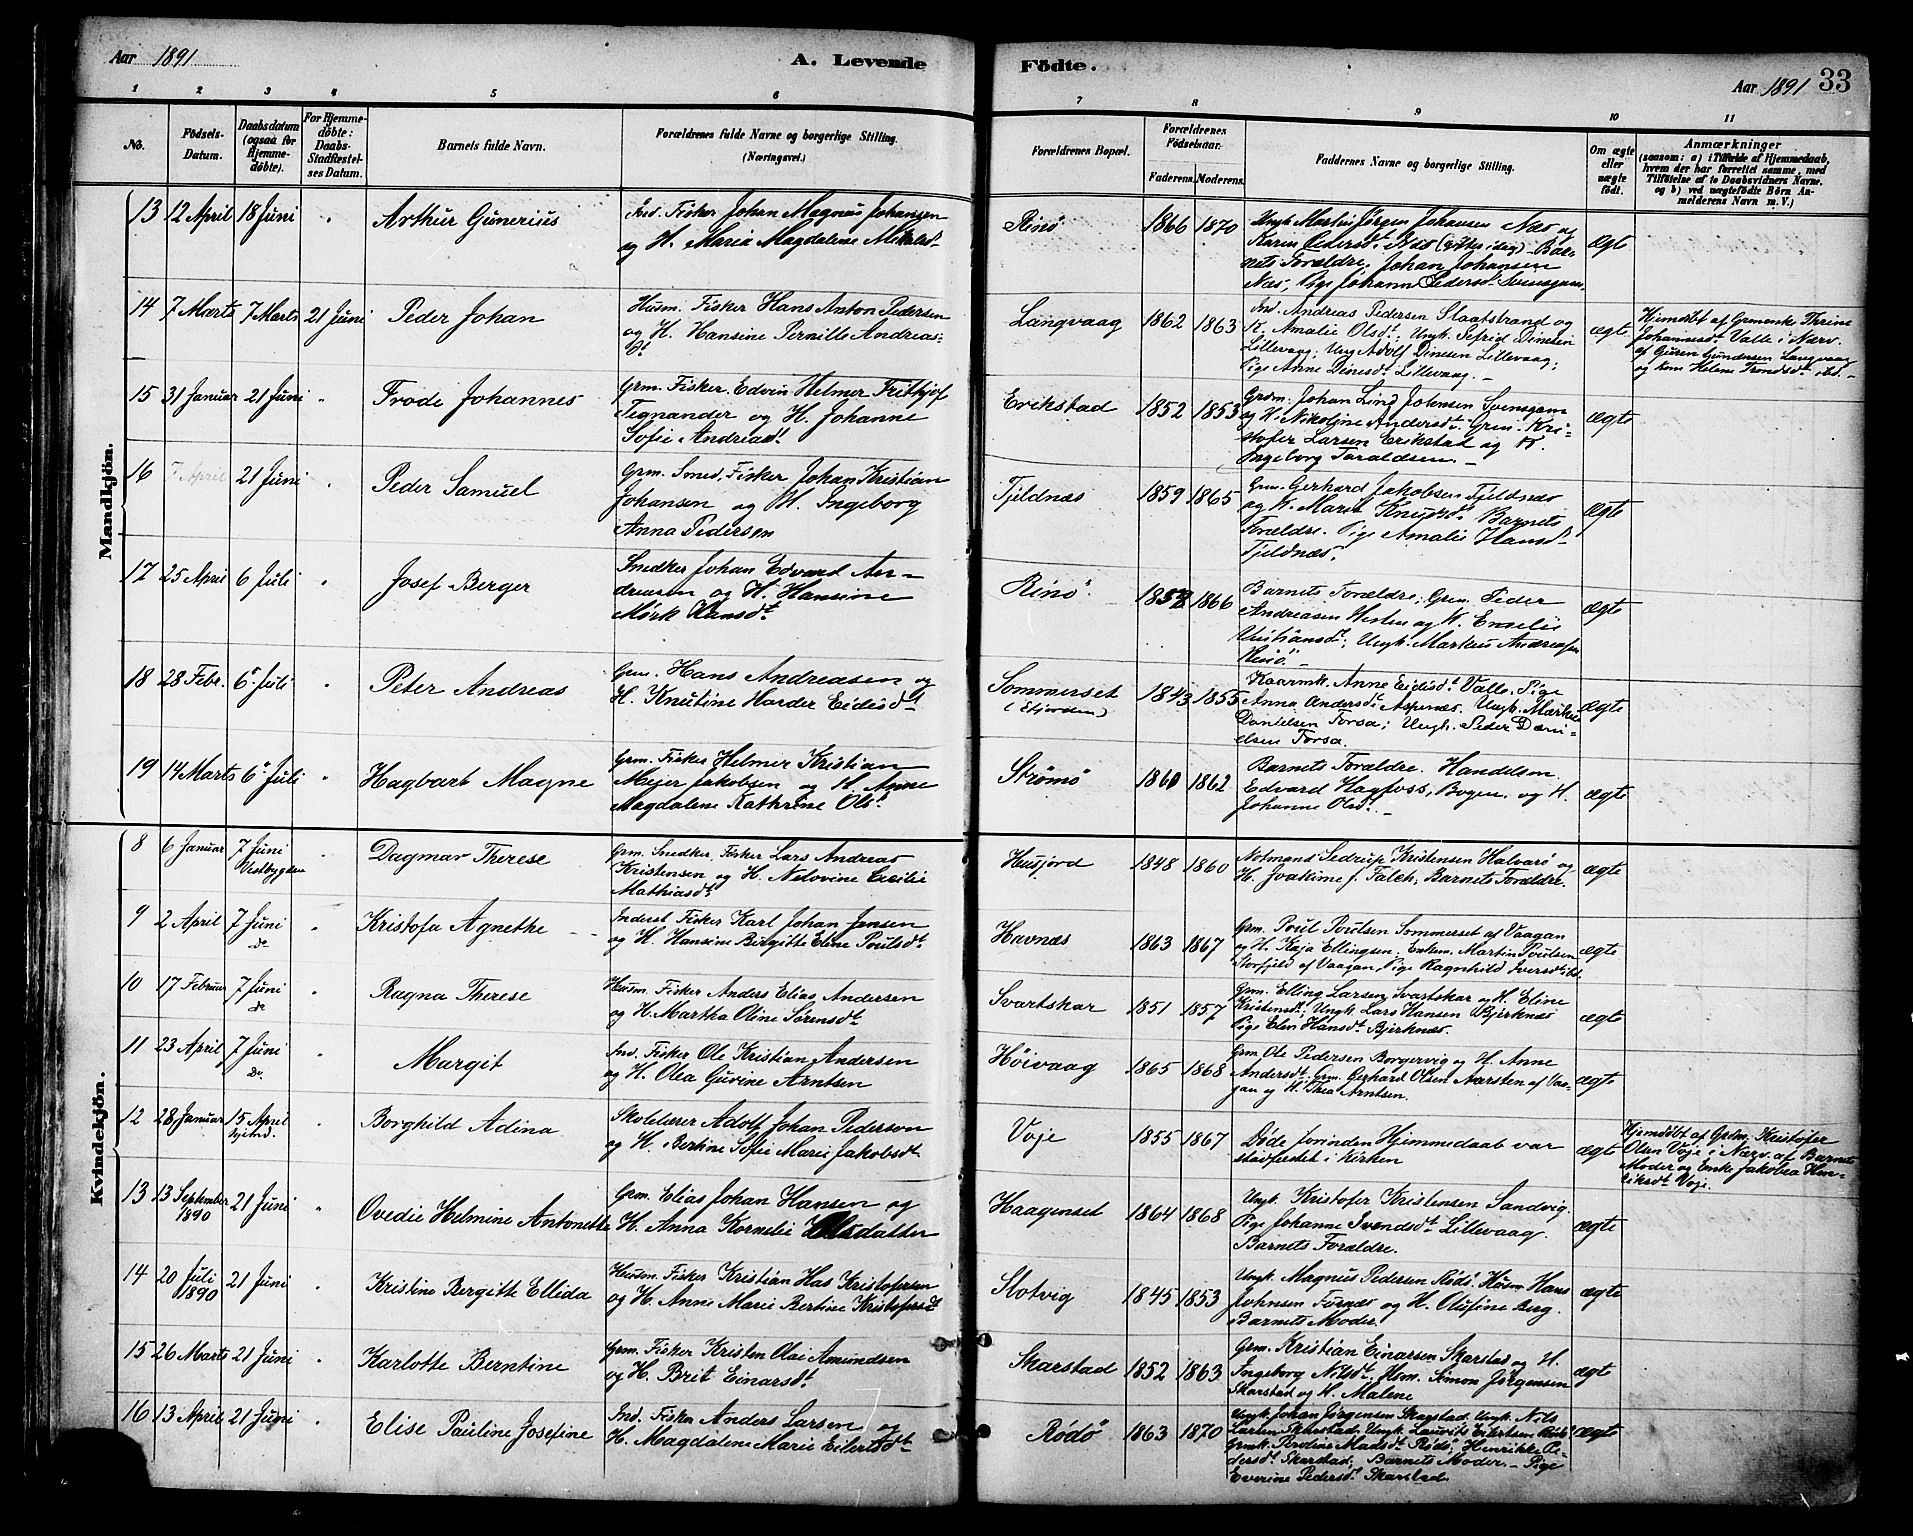 Aar 1891
A. Levende Födte.
Aar 1891 33
1 2 3 4 5 6 7 8 9 10 11
No.
Födsels-Datum.
Daabsdatum (ogsaa for Hjemme-döbte).
For Hjemme-döbte: Daabs-Stadfæstel-ses Datum.
Barnets fulde Navn.
Forældrenes fulde Navne og borgerlige Stilling.
(Næringsvei.)
Forældrenes Bopæl.
Forældrenes Födselsaar.
Faderens. Moderens.
Faddernes Navne og borgerlige Stilling.
Om ægte eller uægte födt.
Anmærkninger
(saasom: a) i Tilfælde af Hjemmedaab,
hvem der har forrettet samme, med
Tilföielse af to Daabsvidners Navne,
og b) ved uægtefödte Börn An-
melderens Navn m. V.)
Mandkjön.
13 12 April 18 Juni " Arthur Gunerius
Ind. Fisker Johan Magnus Johansen
og H. Maria Magdalene Mikalsdt
Rinö 1866 1870
Ungk. Martin Jörgen Johansen Næs og
Karen Pedersdt. Næs (gifter idag) Bar-
nets Forældre. Johan Johansen
Næs, Pige Johanne Pedersdt. Svensgam
ægte
14 7 Marts 7 Marts 21 Juni Peder Johan
Husm. Fisker Hans Anton Pedersen
og H. Hansine Pernille Andreas-
dt
Langvaag 1862 1863
Ind. Andreas Pedersen Slaatstrand og
K. Amalie Olsdt. Ungk. Sefrid Dinesen
Lillevaag; Ung. Adolf Dinesen Lillevaag;
Pige Anne Dinesdt. Lillevaag. –
ægte
Hjemdöbt af Grmenke Thrine
Johannesdt. Valle i Nærv.
af Guren Gundersen Langvaag
og hans Helene Trondsdt. ibd. –
15 31 Januar 21 Juni " Frode Johannes
Grm. Fisker Edvin Helmer Frithjof
Tegnander og H. Johanne
Sofie Andreasdt.
Erikstad 1852 1853
Grdm. Johan Lind Johnsen Svensgam
og H. Nikoline Andersdt. Grm. Kri-
stofer Larsen Erikstad og H.
Ingeborg Taraldsen. –
ægte
16 7 April 21 Juni " Peder Samuel
Grm. Smed, Fisker Johan Kristian
Johansen og H. Ingeborg
Anna Pedersen
Tjeldnæs 1859 1865
Grm. Gerhard Jakobsen Tjeldnæs
og H. Maria Knudsdt. Barnets
Forældre. Pige Amalie Hansdt
Tjeldnæs.
ægte
17 25 April 6 Juli " Josef Berger
Snedker Johan Edvard An-
dreasen og H. Hansine
Mörk Hansdt.
Rinö 1857 1866
Barnets Forældre; Grm. Peder
Andreasen Vesten og H. Enselie
Kristiansdt; Ungk. Markus Andreasen
Rinö. –
ægte
18 28 Febr. 6 Juli " Peter Andreas
Grm. Hans Andreasen og
H. Knutine Harder Eidisdt.
Sommerset
(Efjorden) 1843 1855
Kaarmk. Anne Eidisdt. Valle. Pige
Anna Andersdt. Aspenæs. Ungk. Markus
Danielsen Forsa; Ungk. Peder Dani-
elsen Forsa.
ægte
19 14 Marts 6 Juli " Hagbart Magne
Grm. Fisker Helmer Kristian
Mejer Jakobsen og H. Anne
Magdalene Kathrine Olsdt.
Strömö 1860 1862
Barnets Forældre. Handelsm.
Edvard Hagfoss, Bogen, og H.
Johanne Olsdt. –
ægte
Kvindekjön.
8 6 Januar 7 Juni Vestbygden " Dagmar Therese
Grm. Snedker, Fisker Lars Andreas
Kristensen og H. Nelovine Cecilie
Mathiasdt
Husjord 1848 1860
Notmand Sedrup Kristensen Halvarö og
H. Joakime f. Falch. Barnets Forældre.
ægte
9 2 April 7 Juni do " Kristofa Agnethe
Inderst Fisker Karl Johan Jensen
og H. Hansine Birgitte Eline Poulsdt
Havnæs 1863 1867
Grm. Poul Poulsen Sommerset af Vaagan
og H. Kaja Ellingsen. Enkem. Martin Poulsen
Storfjeld af Vaagan, Pige Ragnhild Iversdt. ibd.
ægte
10 17 Februar 7 Juni do " Ragna Therese
Husm. Fisker Anders Elias Andersen
og H. Martha Oline Sörensdt
Svartskar 1851 1857
Grm. Elling Larsen Svartskar og H. Eline
Kristensdt; Ungk. Lars Hansen Bjerknæs
Pige Elen Hansdt. Bjerknæs.
ægte
11 23 April 7 Juni Do. " Margit
Ind. Fisker Ole Kristian Andersen
og H. Olea Gurine Arntsen
Höivaag 1865 1868
Grm. Ole Pedersen Borgervig og H. Anne
Andersdt. Grm. Gerhard Olsen Aarsten af Vaa-
gan og H. Thea Arntsen.
ægte
12 28 Januar 15 April hjemd. Borghild Adina
Skolelærer Adolf Johan Pedersen
og H. Bertine Sofie Marie Jakobsdt.
Voje 1855 1867
Döde forinden Hjemmedaab var
stadfæstet i Kirken
ægte
Hjemdöbt af Grdm. Kristofer
Olsen Voje i Nærv. af Barnets
Moder og Enke Jakobea Hen-
riksdt. Voje.
13 13 September 1890 21 Juni " Ovedie Helmine Antonette
Grm. Elias Johan Hansen og
H. Anna Kornelie Olsdatter
Haagenset 1864 1868
Ungk. Kristofer Kristensen Sandvig.
Pige Johanne Svendsdt. Lillevaag
Barnets Forældre.
ægte
14 20 Juli 1890 21 Juni " Kristine Bergitte Ellida
Husm. Fisker Kristian Has Kristofersen
og H. Anne Marie Bertine Kristofersdt
Slotvig 1845 1853
Ungk. Magnus Pedersen Rödö. Husm. Hans
Johnsen Fornæs og H. Olufine Berg.
Barnets Moder.
ægte
15 26 Marts 21 Juni " Karlotte Berntine
Grm. Fisker Kristen Olai Amundsen
og H. Brit Einarsdt.
Skarstad 1852 1863
Grm. Kristian Einarsen Skarstad og H.
Ingeborg Nilsdt. Hsm. Simon Jörgensen
Skarstad og H. Malene
ægte
16 13 April 21 Juni " Elise Pauline Josefine
Ind. Fisker Anders Larsen og
H. Magdalene Marie Eilertsdt
Rödö 1863 1870
Ungk. Johan Jörgensen Skarstad. Ungk. Nils
Larsen Skarstad, Ungk. Laurits Eilertsen Rödö.
Grmk. Pordine Madsdt. Rödö. Henrikke Pe-
dersdt. Skarstad. Barnets Moder. – Pige
Everine Pedersdt. Skarstad.
ægte